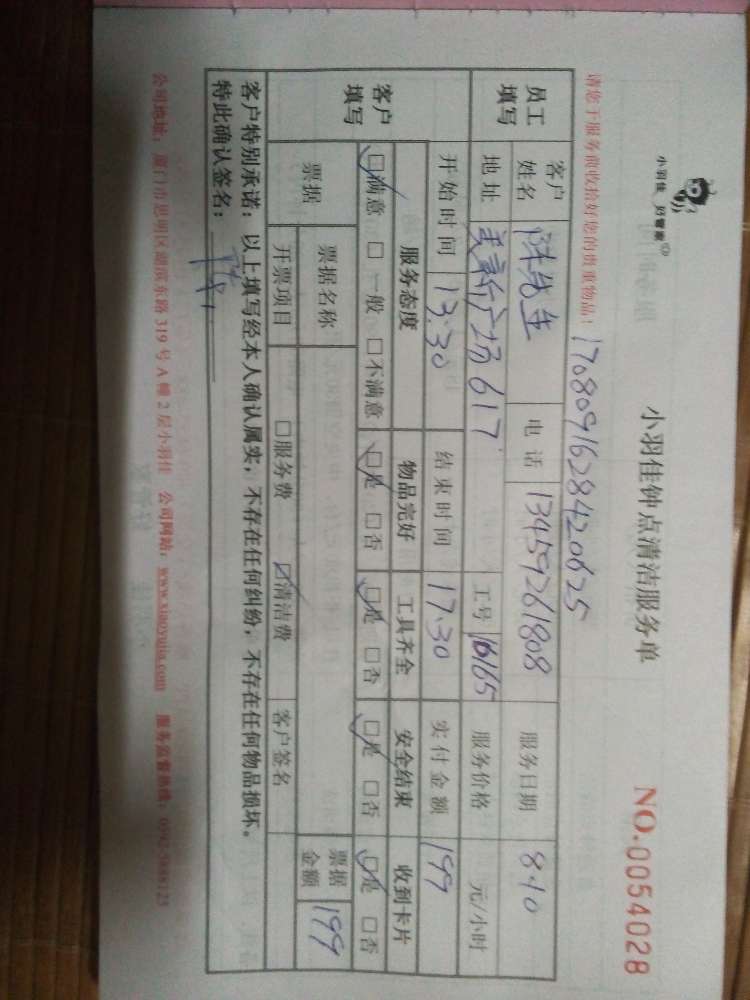 小羽佳 好管家
小羽佳钟点清洁服务单
NO.0054028
请您于服务前收拾好您的贵重物品!
1708091628420625
员工填写
客户姓名 陈先生 电话 13459261808 服务日期 8.10
地址 广场617 工号 16165 服务价格 元/小时
客户填写
开始时间 13.30 结束时间 17.30 实付金额 199
服务态度 物品完好 工具齐全 安全结束 收到卡片
☑满意 □一般 □不满意 ☑是 □否 ☑是 □否 ☑是 □否 ☑是 □否
票据 票据名称 票据金额 199
开票项目 □服务费 ☑清洁费 客户签名
客户特别承诺:以上填写经本人确认属实,不存在任何纠纷,不存在任何物品损坏。
特此确认签名:
公司地址:厦门市思明区湖滨东路319号A幢2层小羽佳 公司网站:www.xiaoyujia.com 服务监督热线:0592-5888125